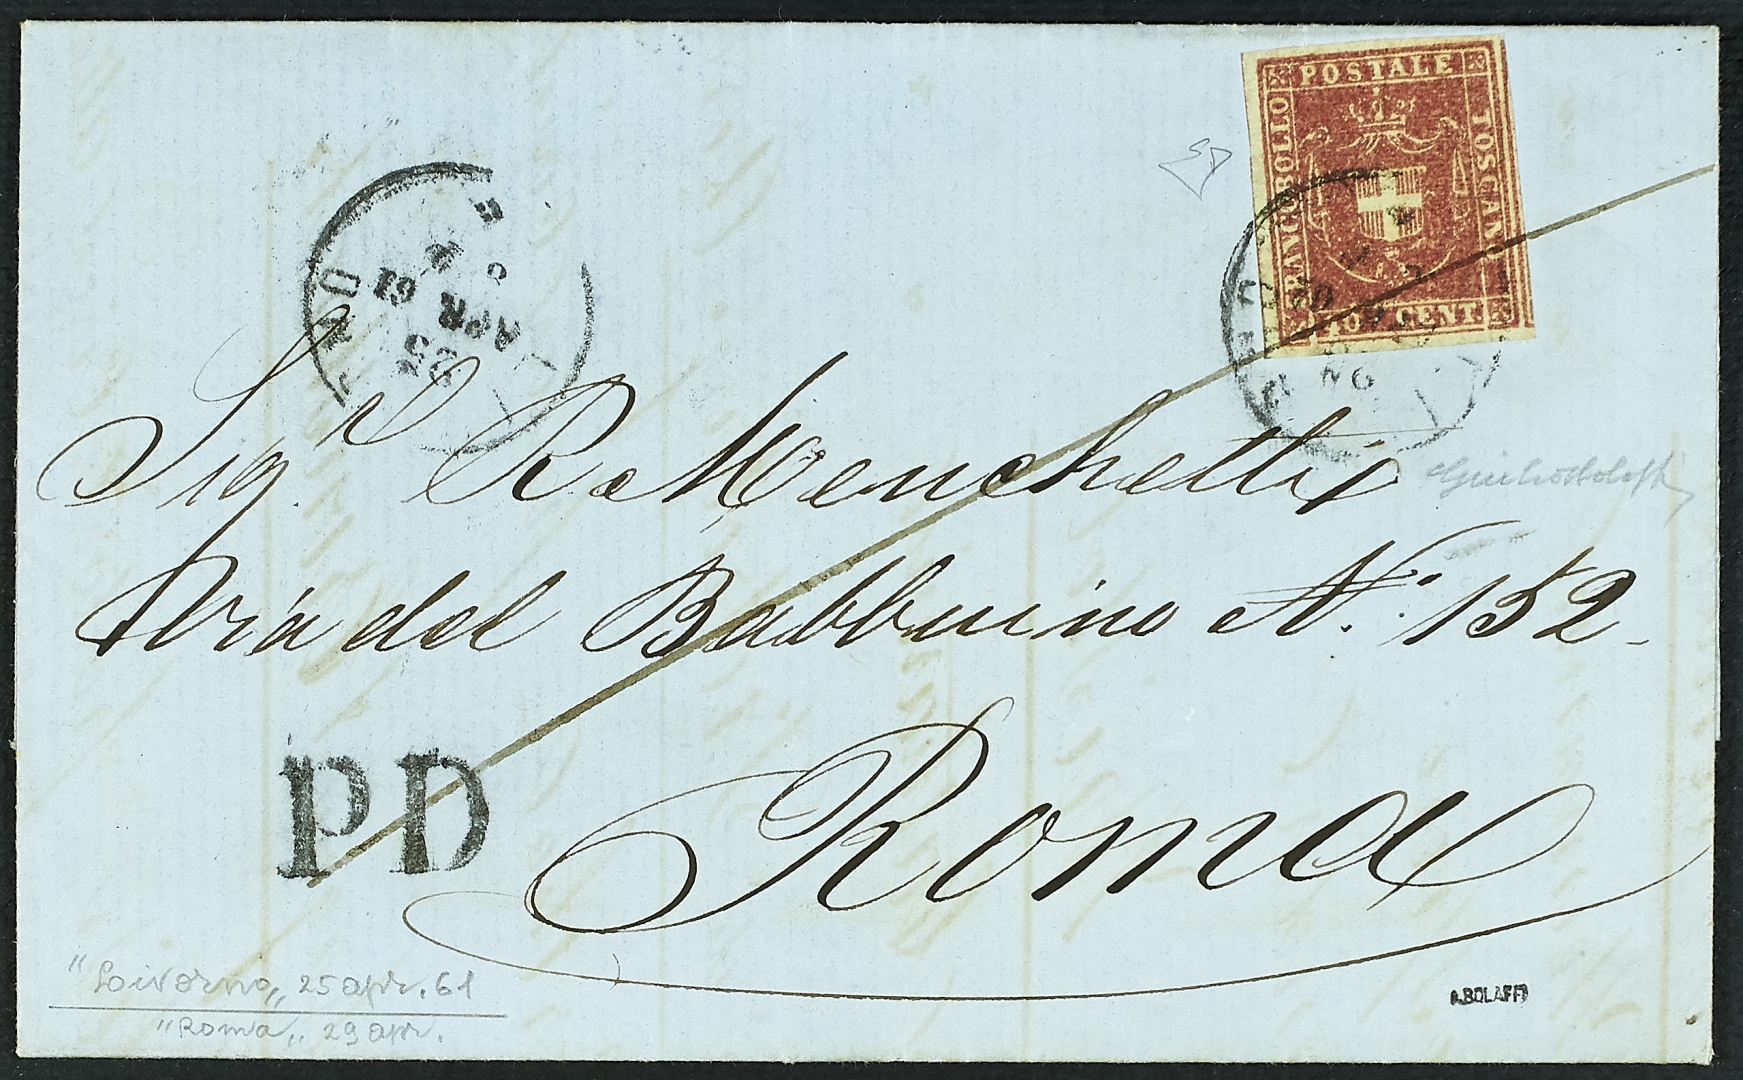 FRANCOBOLLO POSTALE TOSCANO
40 CENT
25
APR 61
Sig. R. Menchetti
Via del Babbuino N.° 152
PD
Roma
"Livorno„ 25 apr. 61
"Roma„ 29 apr.
A.BOLAFFI